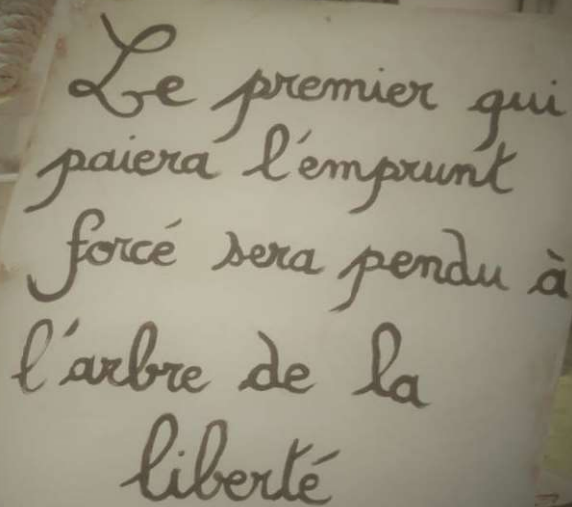 Le premier qui
paiera l'emprunt
forcé sera pendu à
l'arbre de la
liberté